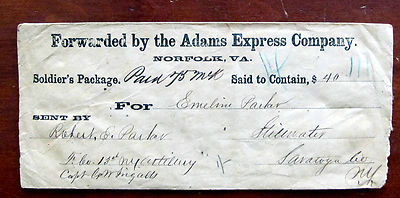 Forwarded by the Adams Express Company.
NORFOLK, VA.
Soldier's Package. Paid 75 Said to Contain, $ 40
For Emeline Parker
SENT BY
Robert E. Parker Stillwater
F. Co. 13th NY Artillery Saratoga Co
Capt Ingalls NY